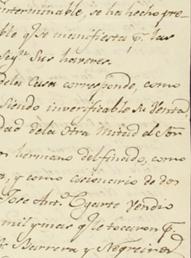 interminable, se ha hecho pre
ble q.e se manifiesta p.r las
Seg.n Sus haveres.
dela Casa corresponde, como
Siendo inverificable su Venta
dad dela Otra Mitad el Sor
hermano del finado, como
y como cesionario de dos
Jose Ant.o Ugarte Vendio
mil y mas q.e le tocaron p.r
Barrera y Negreiros